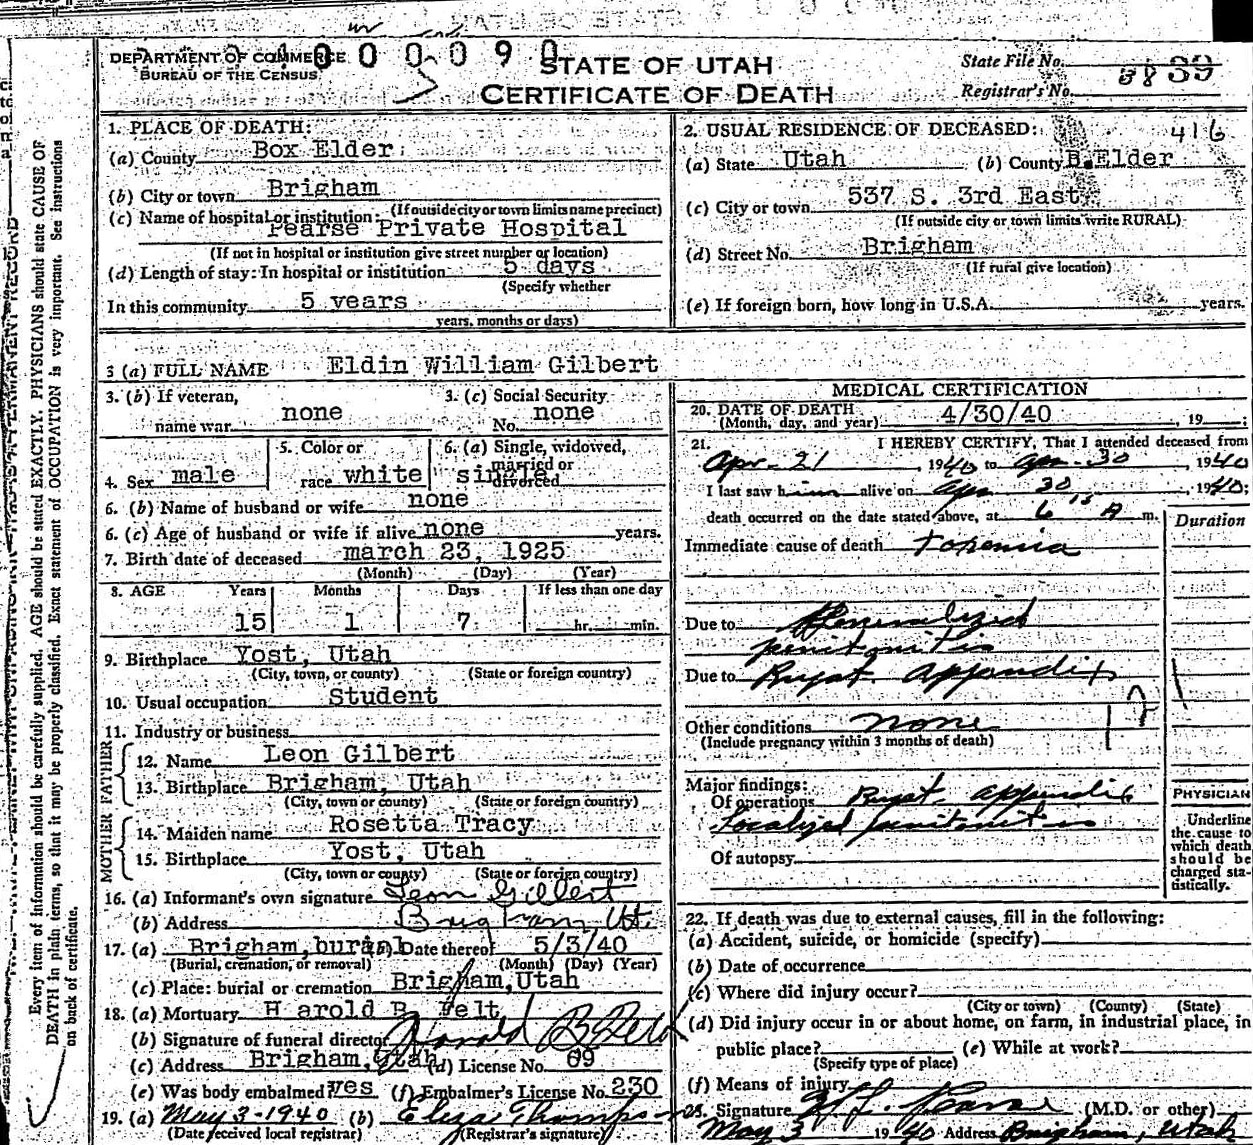 DEPARTMENT OF COMMERCE
BUREAU OF THE CENSUS
STATE OF UTAH
CERTIFICATE OF DEATH
State File No.
Registrar's No. 3839
Every item of information should be carefully supplied. AGE should be stated EXACTLY. PHYSICIANS should state CAUSE OF
DEATH in plain terms, so that it may be properly classified. Exact statement of OCCUPATION is very important. See instructions
on back of certificate.
1. PLACE OF DEATH:
(a) County Box Elder
(b) City or town Brigham
(If outside city or town limits name precinct)
(c) Name of hospital or institution:
Pearse Private Hospital
(If not in hospital or institution give street number or location)
(d) Length of stay: In hospital or institution 5 days
(Specify whether
In this community 5 years
years, months or days)
2. USUAL RESIDENCE OF DECEASED: 416
(a) State Utah (b) County B. Elder
537 S. 3rd East
(c) City or town
(If outside city or town limits write RURAL)
(d) Street No. Brigham
(If rural give location)
(e) If foreign born, how long in U.S.A. years.
3 (a) FULL NAME Eldin William Gilbert
3. (b) If veteran, name war none
3. (c) Social Security No. none
4. Sex male
5. Color or race white
6. (a) Single, widowed, married or divorced single
6. (b) Name of husband or wife none
6. (c) Age of husband or wife if alive none years.
7. Birth date of deceased march 23, 1925
(Month) (Day) (Year)
8. AGE Years Months Days If less than one day
15 1 7 hr. min.
9. Birthplace Yost, Utah
(City, town, or county) (State or foreign country)
10. Usual occupation Student
11. Industry or business
FATHER
12. Name Leon Gilbert
13. Birthplace Brigham, Utah
(City, town or county) (State or foreign country)
MOTHER
14. Maiden name Rosetta Tracy
15. Birthplace Yost, Utah
(City, town or county) (State or foreign country)
16. (a) Informant's own signature Leon Gilbert
(b) Address Brigham, Ut.
17. (a) Brigham, burial (b) Date thereof 5/3/40
(Burial, cremation, or removal) (Month) (Day) (Year)
(c) Place: burial or cremation Brigham, Utah
18. (a) Mortuary Harold B. Felt
(b) Signature of funeral director Harold B Felt
(c) Address Brigham, Utah (d) License No. 69
(e) Was body embalmed? yes (f) Embalmer's License No. 230
19. (a) May 3-1940 (b) Eliza Thompson
(Date received local registrar) (Registrar's signature)
MEDICAL CERTIFICATION
20. DATE OF DEATH 4/30/40, 19 ;
(Month, day, and year)
21. I HEREBY CERTIFY, That I attended deceased from
Apr-21, 1940 to Apr-30, 1940
I last saw him alive on Apr 30, 1940;
death occurred on the date stated above, at 6 15 A m.
Duration
Immediate cause of death Toxemia
Due to Generalized
peritonitis
Due to Rupt. appendix
Other conditions none
(Include pregnancy within 3 months of death)
Major findings:
Of operations Rupt. appendix
Localized peritonitis
Of autopsy
PHYSICIAN
Underline
the cause to
which death
should be
charged sta-
tistically.
22. If death was due to external causes, fill in the following:
(a) Accident, suicide, or homicide (specify)
(b) Date of occurrence
(c) Where did injury occur?
(City or town) (County) (State)
(d) Did injury occur in or about home, on farm, in industrial place, in
public place? (e) While at work?
(Specify type of place)
(f) Means of injury
23. Signature (M.D. or other)
May 3 1940 Address Brigham, Utah